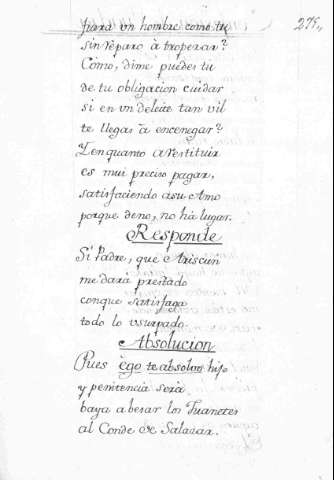 para un hombre como tu
275,,
sin reparo à troperar?
Como, dime puedes tu
de tu obligacion cuidar
si en un deleite tan vil
te llegas à encenegar?
Y en quanto a restituir
es mui preciso pagar,
satisfaciendo a su Amo
porque de no, no há lugar.
Responde
Si Padre, que Ariscun
me dará prestado
conque satisfaga
todo lo usurpado.
Absolucion
Pues ègo te absolvo hijo
y penitencia será
baya a besar los Juanetes
al Conde de Salazar.